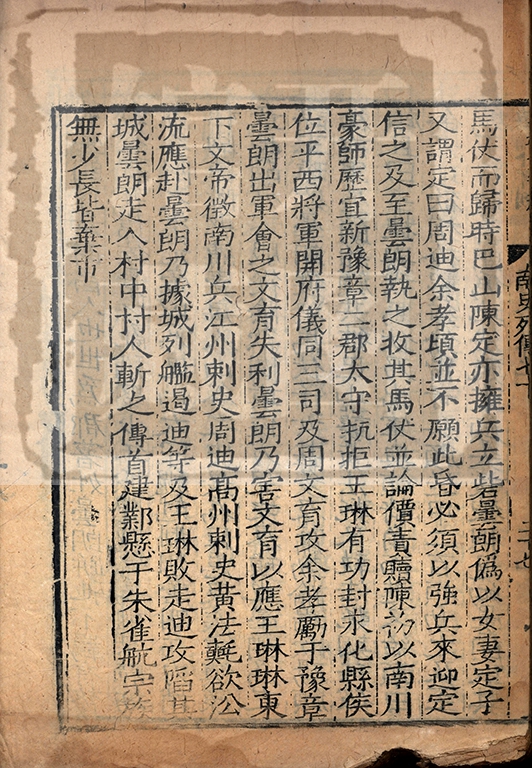 馬仗而歸時巴山陳定亦擁兵立砦曇朗僞以女妻定子
又謂定曰周迪余孝頃並不願此昏必須以強兵來迎定
信之及至曇朗執之收其馬仗並論價責贖陳初以南川
豪帥歷宜新豫章二郡太守抗拒王琳有功封永化縣侯
位平西將軍開府儀同三司及周文育攻余孝勵于豫章
曇朗出軍會之文育失利曇朗乃害文育以應王琳琳東
下文帝徵南川兵江州刺史周迪高州刺史黃法𣰰欲㳂
流應赴曇朗乃據城列艦遏迪等及王琳敗走迪攻陷其
城曇朗走入村中村人斬之傳首建鄴懸于朱雀航宗族
無少長皆棄市
南史列傳七十